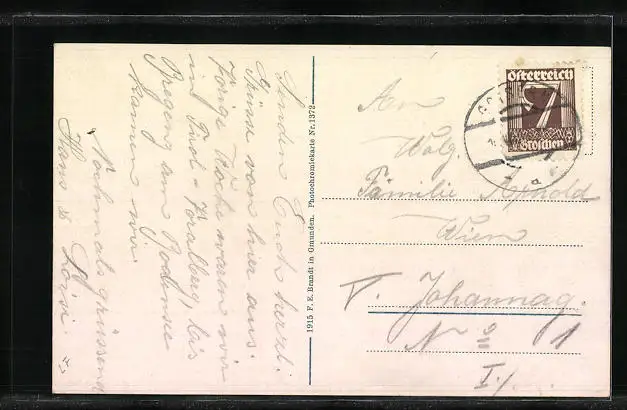 Senden Euch herzl.
Grüsse von hier aus.
Vorige Woche waren wir
in Tirol - Voralberg, bis
Bregenz am Bodensee
kamen wir
Nochmals grüssend
Hans & Loisi
1915 F. E. Brandt in Gmunden. Photochromiekarte Nr. 1372
Österreich
7
Groschen
An
Wolg.
Familie Arnold
Wien
V. Johannag.
N 1